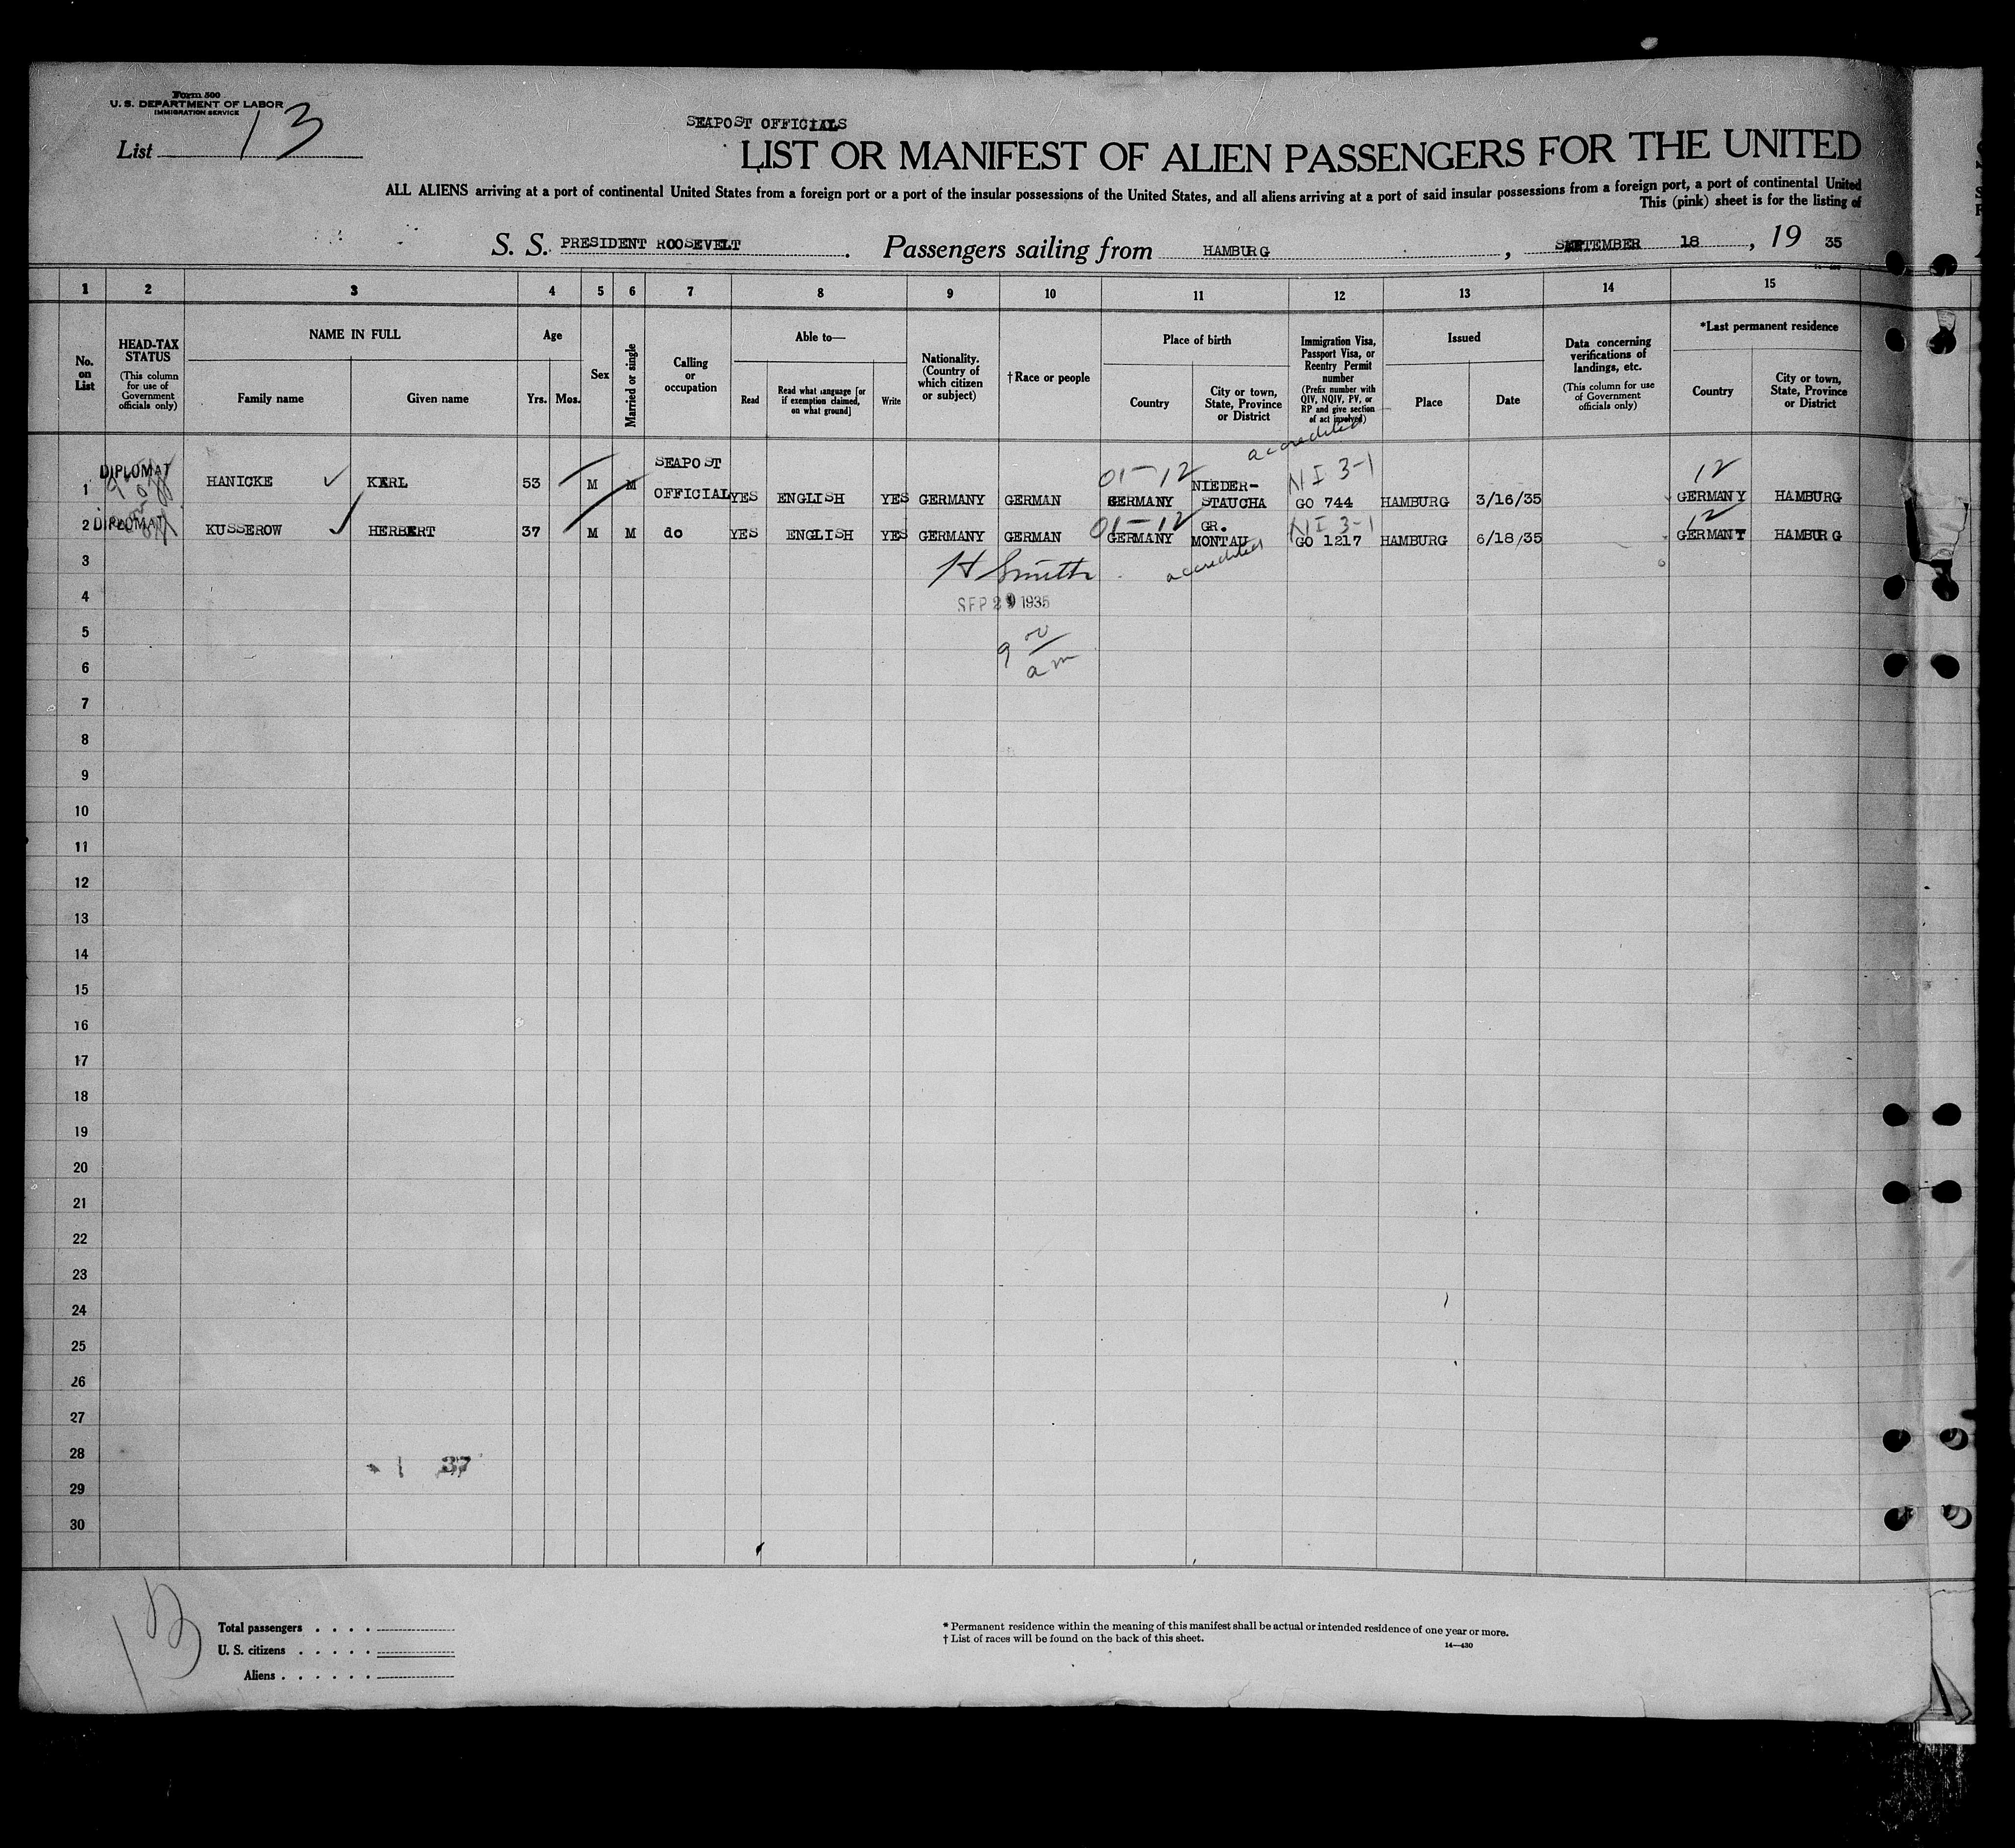 Form 500
U. S. DEPARTMENT OF LABOR
IMMIGRATION SERVICE
List 13
SEAPOST OFFICIALS
LIST OR MANIFEST OF ALIEN PASSENGERS FOR THE UNITED
ALL ALIENS arriving at a port of continental United States from a foreign port or a port of the insular possessions of the United States, and all aliens arriving at a port of said insular possessions from a foreign port, a port of continental United
This (pink) sheet is for the listing of
S. S. PRESIDENT ROOSEVELT. Passengers sailing from HAMBURG, SEPTEMBER 18, 19 35
1 2 3 4 5 6 7 8 9 10 11 12 13 14 15
No. on List
HEAD-TAX STATUS (This column for use of Government officials only)
NAME IN FULL
Family name Given name
Age
Yrs. Mos.
Sex
Married or single
Calling or occupation
Able to—
Read Read what language [or if exemption claimed, on what ground] Write
Nationality. (Country of which citizen or subject)
†Race or people
Place of birth
Country City or town, State, Province or District
Immigration Visa, Passport Visa, or Reentry Permit number (Prefix number with QIV, NQIV, PV, or RP and give section of act involved)
Issued
Place Date
Data concerning verifications of landings, etc. (This column for use of Government officials only)
*Last permanent residence
Country City or town, State, Province or District
accredited
1 DIPLOMAT HANICKE KARL 53 M M SEAPOST OFFICIAL YES ENGLISH YES GERMANY GERMAN 01-12 GERMANY NIEDER-STAUCHA NI 3-1 GO 744 HAMBURG 3/16/35 12 GERMANY HAMBURG
2 DIPLOMAT KUSSEROW HERBERT 37 M M do YES ENGLISH YES GERMANY GERMAN 01-12 GERMANY GR. MONTAU NI 3-1 GO 1217 HAMBURG 6/18/35 12 GERMANY HAMBURG
3 H Smith accredited
4 SEP 29 1935
5
6 9 00 am
7
8
9
10
11
12
13
14
15
16
17
18
19
20
21
22
23
24
25
26
27
28
37
29
30
13
Total passengers . . . .
U. S. citizens . . . . .
Aliens . . . . . .
* Permanent residence within the meaning of this manifest shall be actual or intended residence of one year or more.
† List of races will be found on the back of this sheet.
14—430